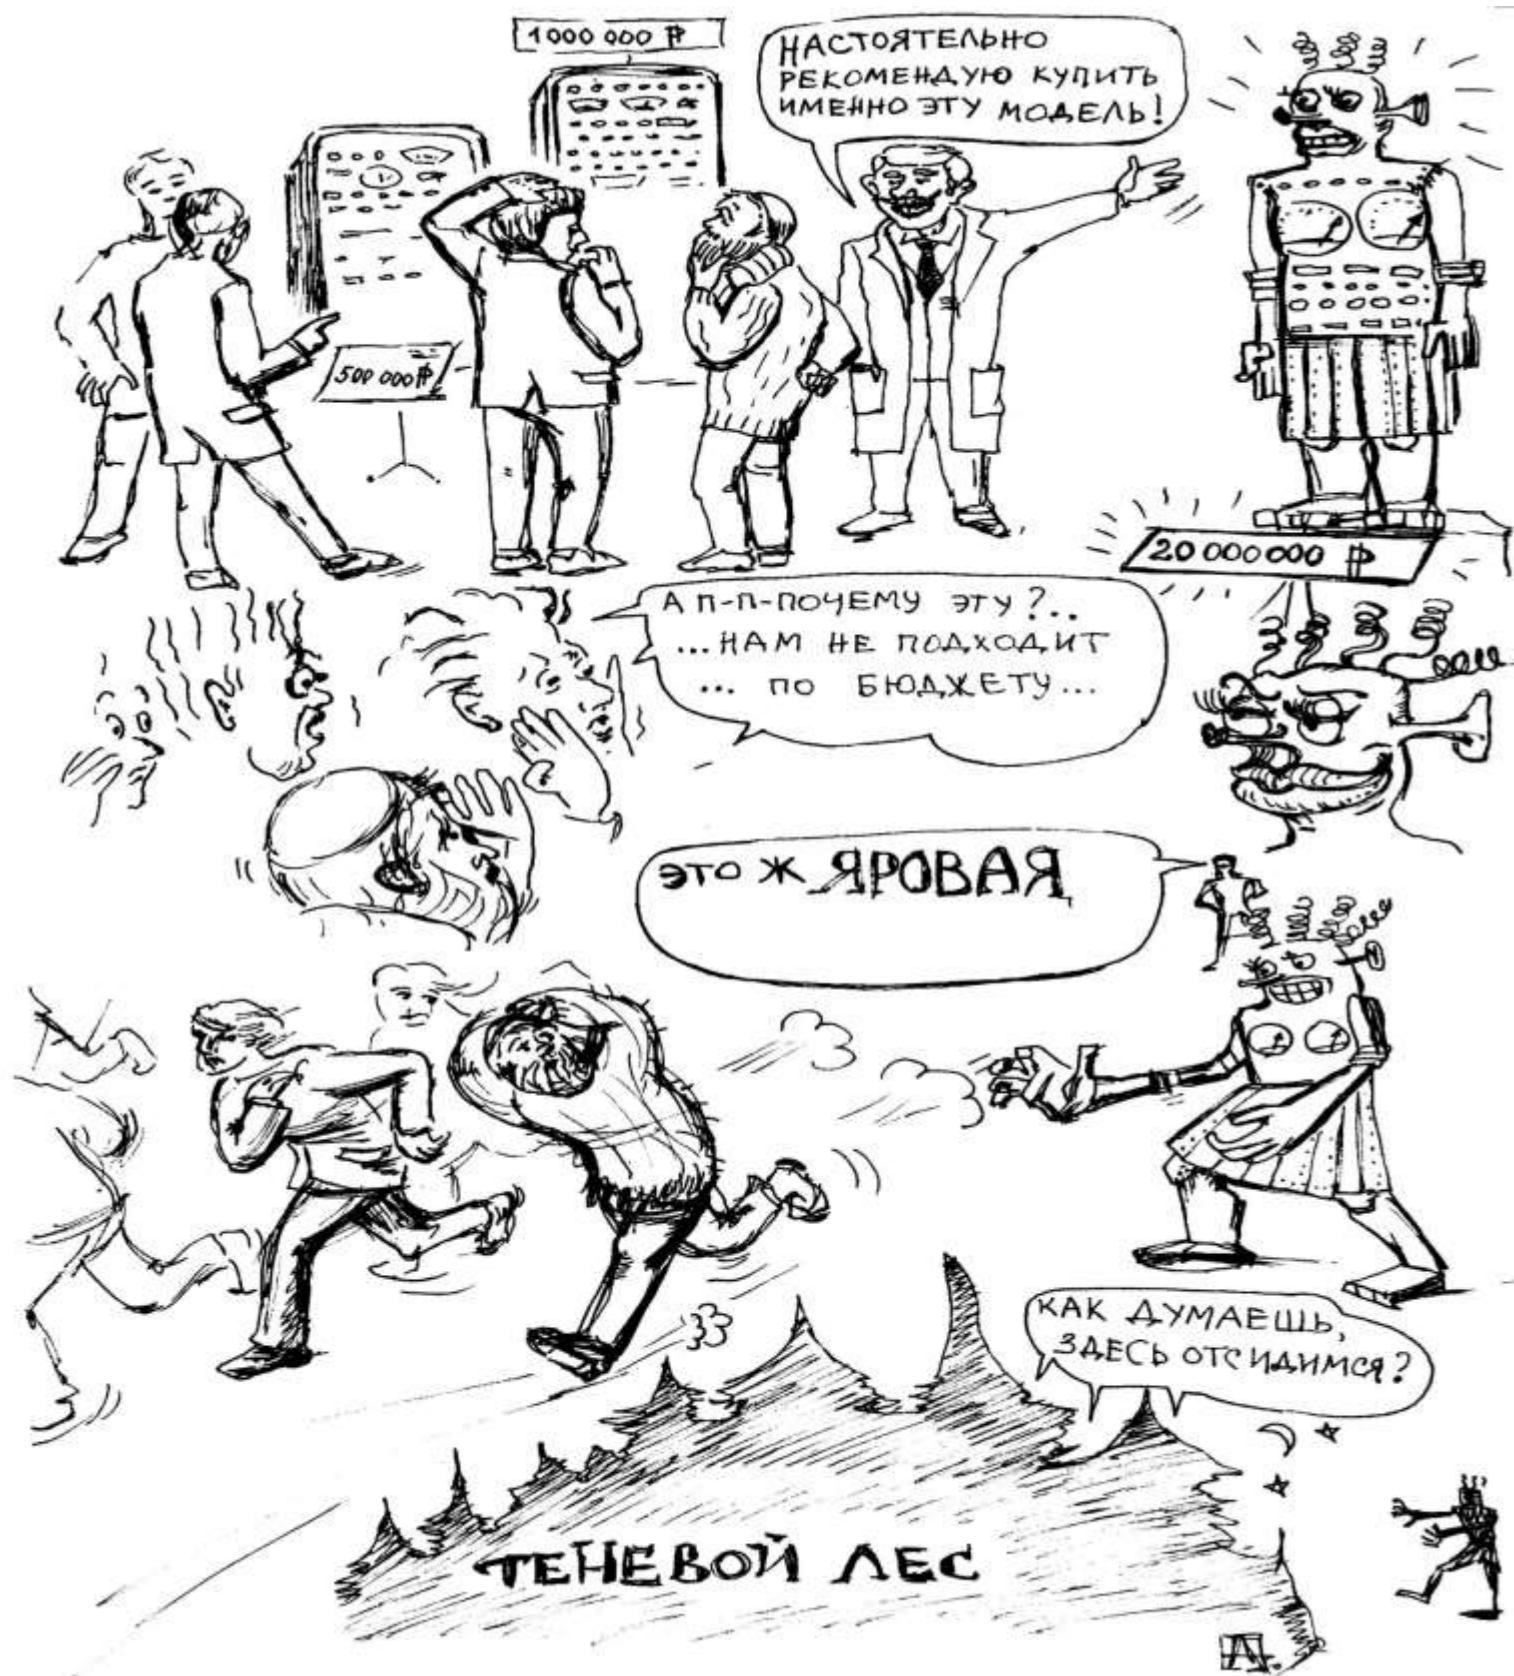 1 000 000 ₽
НАСТОЯТЕЛЬНО
РЕКОМЕНДУЮ КУПИТЬ
ИМЕННО ЭТУ МОДЕЛЬ!
500 000 ₽
20 000 000 ₽
А П-П-ПОЧЕМУ ЭТУ?..
...НАМ НЕ ПОДХОДИТ
... ПО БЮДЖЕТУ...
ЭТО Ж ЯРОВАЯ
КАК ДУМАЕШЬ,
ЗДЕСЬ ОТСИДИМСЯ?
ТЕНЕВОЙ ЛЕС